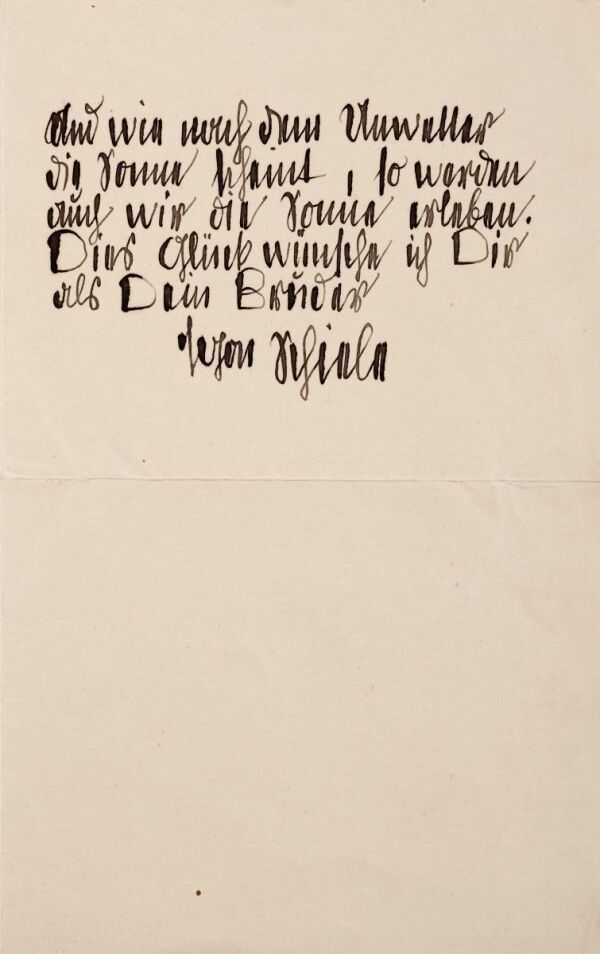 Und wie nach dem Unwetter
die Sonne scheint, so werden
auch wir die Sonne erleben.
Dies Glück wünsche ich Dir
als Dein Bruder
Egon Schiele